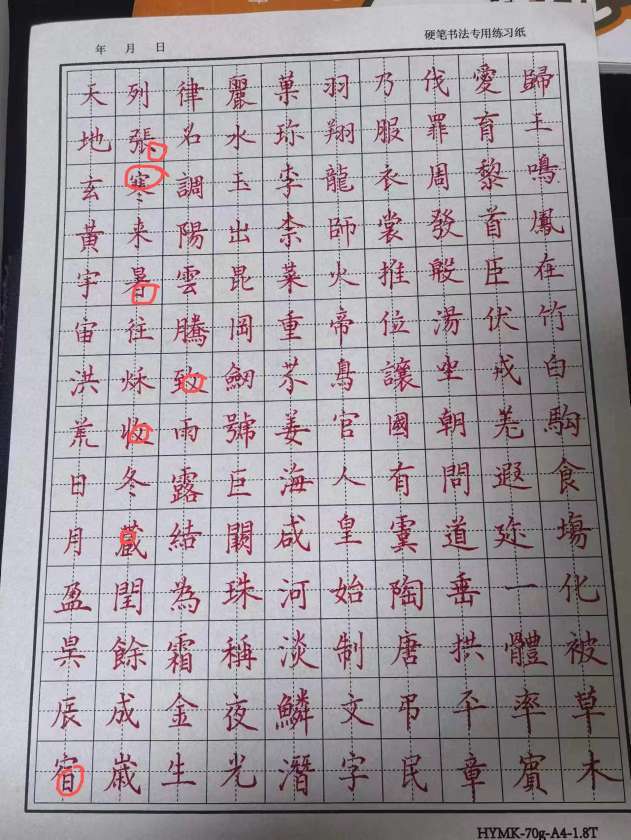 年 月 日
硬笔书法专用练习纸
天地玄黃宇宙洪荒日月盈昃辰宿
列張寒来暑往秌收冬藏閏餘成歲
律名調陽雲騰致雨露結為霜金生
麗水玉出昆岡劒號巨闕珠稱夜光
菓珎李柰菜重芥姜海咸河淡鱗潛
羽翔龍師火帝鳥官人皇始制文字
乃服衣裳推位讓國有虞陶唐弔民
伐罪周發殷湯坐朝問道垂拱平章
愛育黎首臣伏戎羌遐迩一體率賓
歸王鳴鳳在竹白駒食塲化被草木
HYMK-70g-A4-1.8T